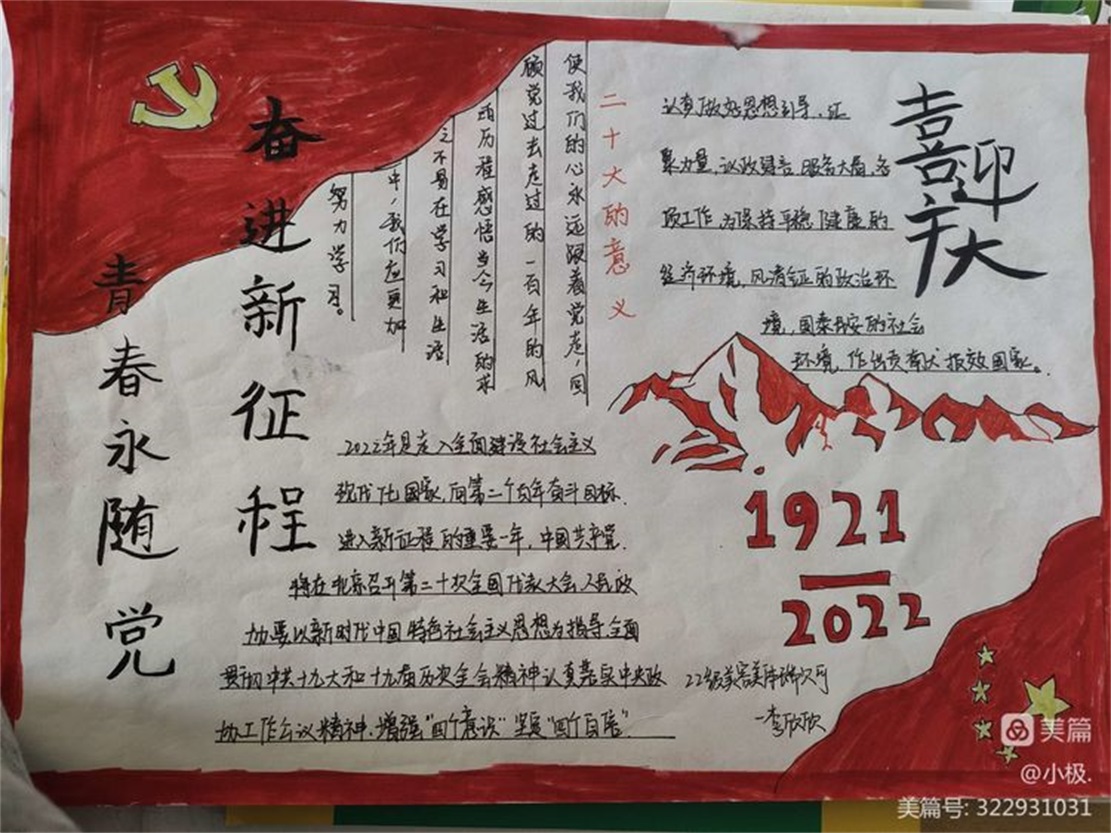 奋进新征程
青春永随党
喜迎
大
二十大的意义
使我们的心永远跟着党走,回
顾党过去走过的一百年的风
雨历程感悟当今生活的来
之不易在学习和生活
中,我们应更加
努力学习。
认真做好思想引导,汇
聚力量,议政建言,服务大局,各
项工作,为保持平稳健康的
经济环境,风清气正的政治环
境,国泰民安的社会
环境,作出贡献,报效国家。
2022年是走入全面建设社会主义
现代化国家,向第二个百年奋斗目标,
进入新征程的重要一年,中国共产党,
将在北京召开第二十次全国代表大会人民政
协要以新时代中国特色社会主义思想为指导全面
贯彻中共十九大和十九届历次全会精神认真落实中央政
协工作会议精神,增强“四个意识”坚定“四个自信”.
1921
2022
22级美容美体
-李欣欣
美篇
@小极.
美篇号: 322931031